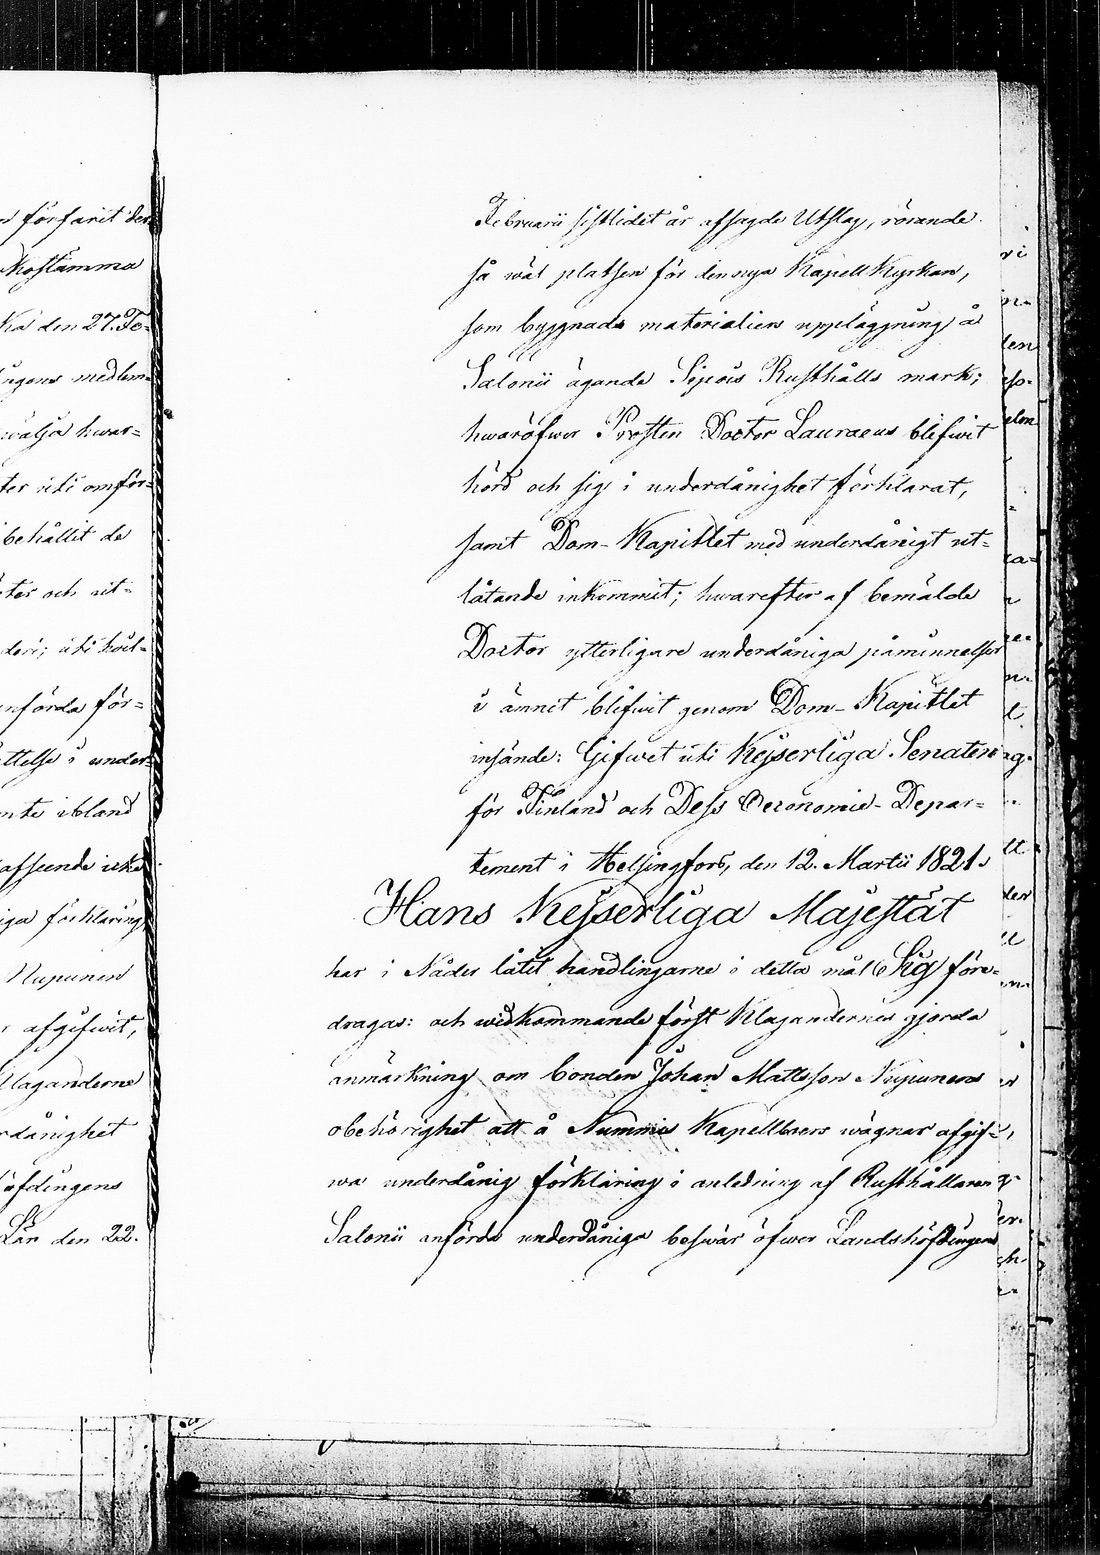 n förfarit der-
kostämma
ka den 27. Fe-
ingens medlem-
wälja hwar-
ter uti omför-
behållit de
ter och ut-
deri; uti hwil-
nförda för-
ttelse i under-
nte ibland
afseende icke
iga förklaring
Nupunen
afgifwit,
Klaganderne
rdånighet
öfdingens
Län den 22.
Februarii sistlidet år afsagde Utslag, rörande
så wäl platsen för den nya Kapell Kyrkan,
som byggnads materialiers uppläggning å
Salonii ägande Sipois Rusthålls mark;
hwaröfwer Prosten Doctor Lauraeus blifwit
hörd och sig i underdånighet förklarat,
samt Dom-Kapitlet med underdånigt ut-
låtande inkommit; hwarefter af bemälde
Doctor ytterligare underdåniga påminnelser
i ämnet blifwit genom Dom-Kapitlet
insände: Gifwet uti Kejserliga Senaten
för Finland och Dess Oeconomie-Depar-
tement i Helsingfors, den 12. Martii 1821.
Hans Kejserliga Majestät
har i Nåder låtit handlingarne i detta mål Sig före-
dragas: och widkommande först Klagandernes gjorda
anmärkning om bonden Johan Mattsson Nupunens
obehörighet att å Nummis Kapellboers wägnar afgif-
wa underdånig förklaring i anledning af Rusthållaren
Salonii anförda underdåniga beswär öfwer Landshöfdingens